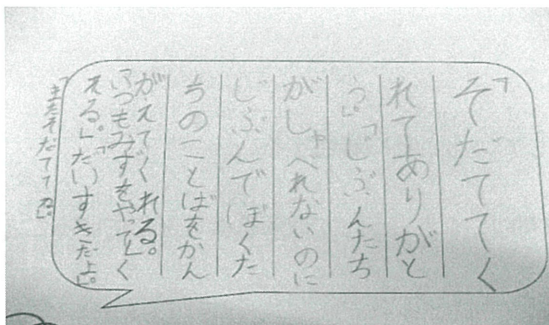 「そだててく
れてありがと
う」「じぶんたち
がしゃべれないのに
じぶんでぼくた
ちのことばをかん
がえてくれる。
いつもみずをやてく
える。」「だいすきだよ」。
「またそだててる」。